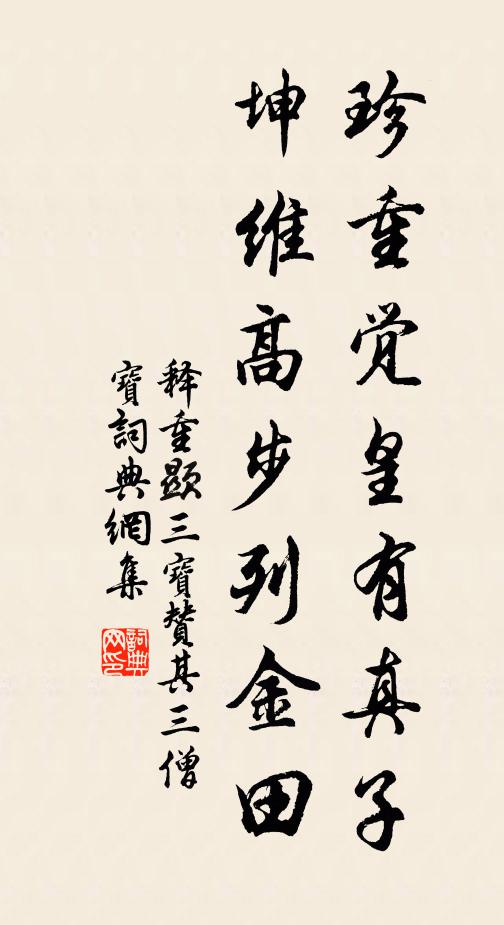 珍重觉皇有真子
坤维高步列金田
释重顯三寶贊其三僧
寶詞典網集
詞典网印